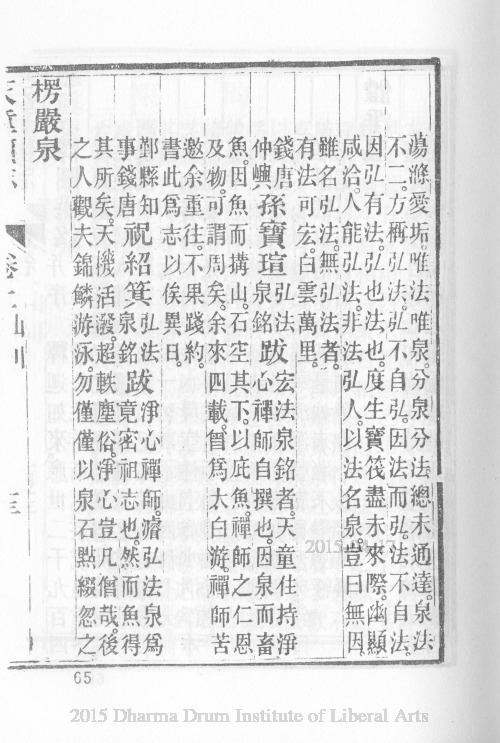 蕩滌愛垢。唯法唯泉。分泉分法。總未通達。泉法
不二。方稱弘法。弘不自弘。因法而弘。法不自法。
因弘有法。弘也法也。度生寶筏。盡未來際。幽顯
咸洽。人能弘法。非法弘人。以法名泉。豈曰無因。
雖名弘法。無弘法者。
有法可宏。白雲萬里。
錢唐孫寶瑄弘法泉銘跋宏法泉銘者。天童住持淨
仲嶼
心禪師自撰也。因泉而畜
魚。因魚而搆山。石空其下。以庇魚。禪師之仁恩
及物。可謂周矣。余來四載。嘗爲太白游。禪師苦
邀余重往。不果踐約。
書此爲志。以俟異日。
鄞縣知事錢唐祝紹箕弘法泉銘跋淨心禪師。濬弘法泉。爲
竟密祖志也。然而魚得
其所矣。天機活潑。超軼塵俗。淨心豈凡僧哉。後
之人觀夫錦鱗游泳。勿僅僅以泉石點綴忽之
楞嚴泉
三
65
2015
2015 Dharma Drum Institute of Liberal Arts